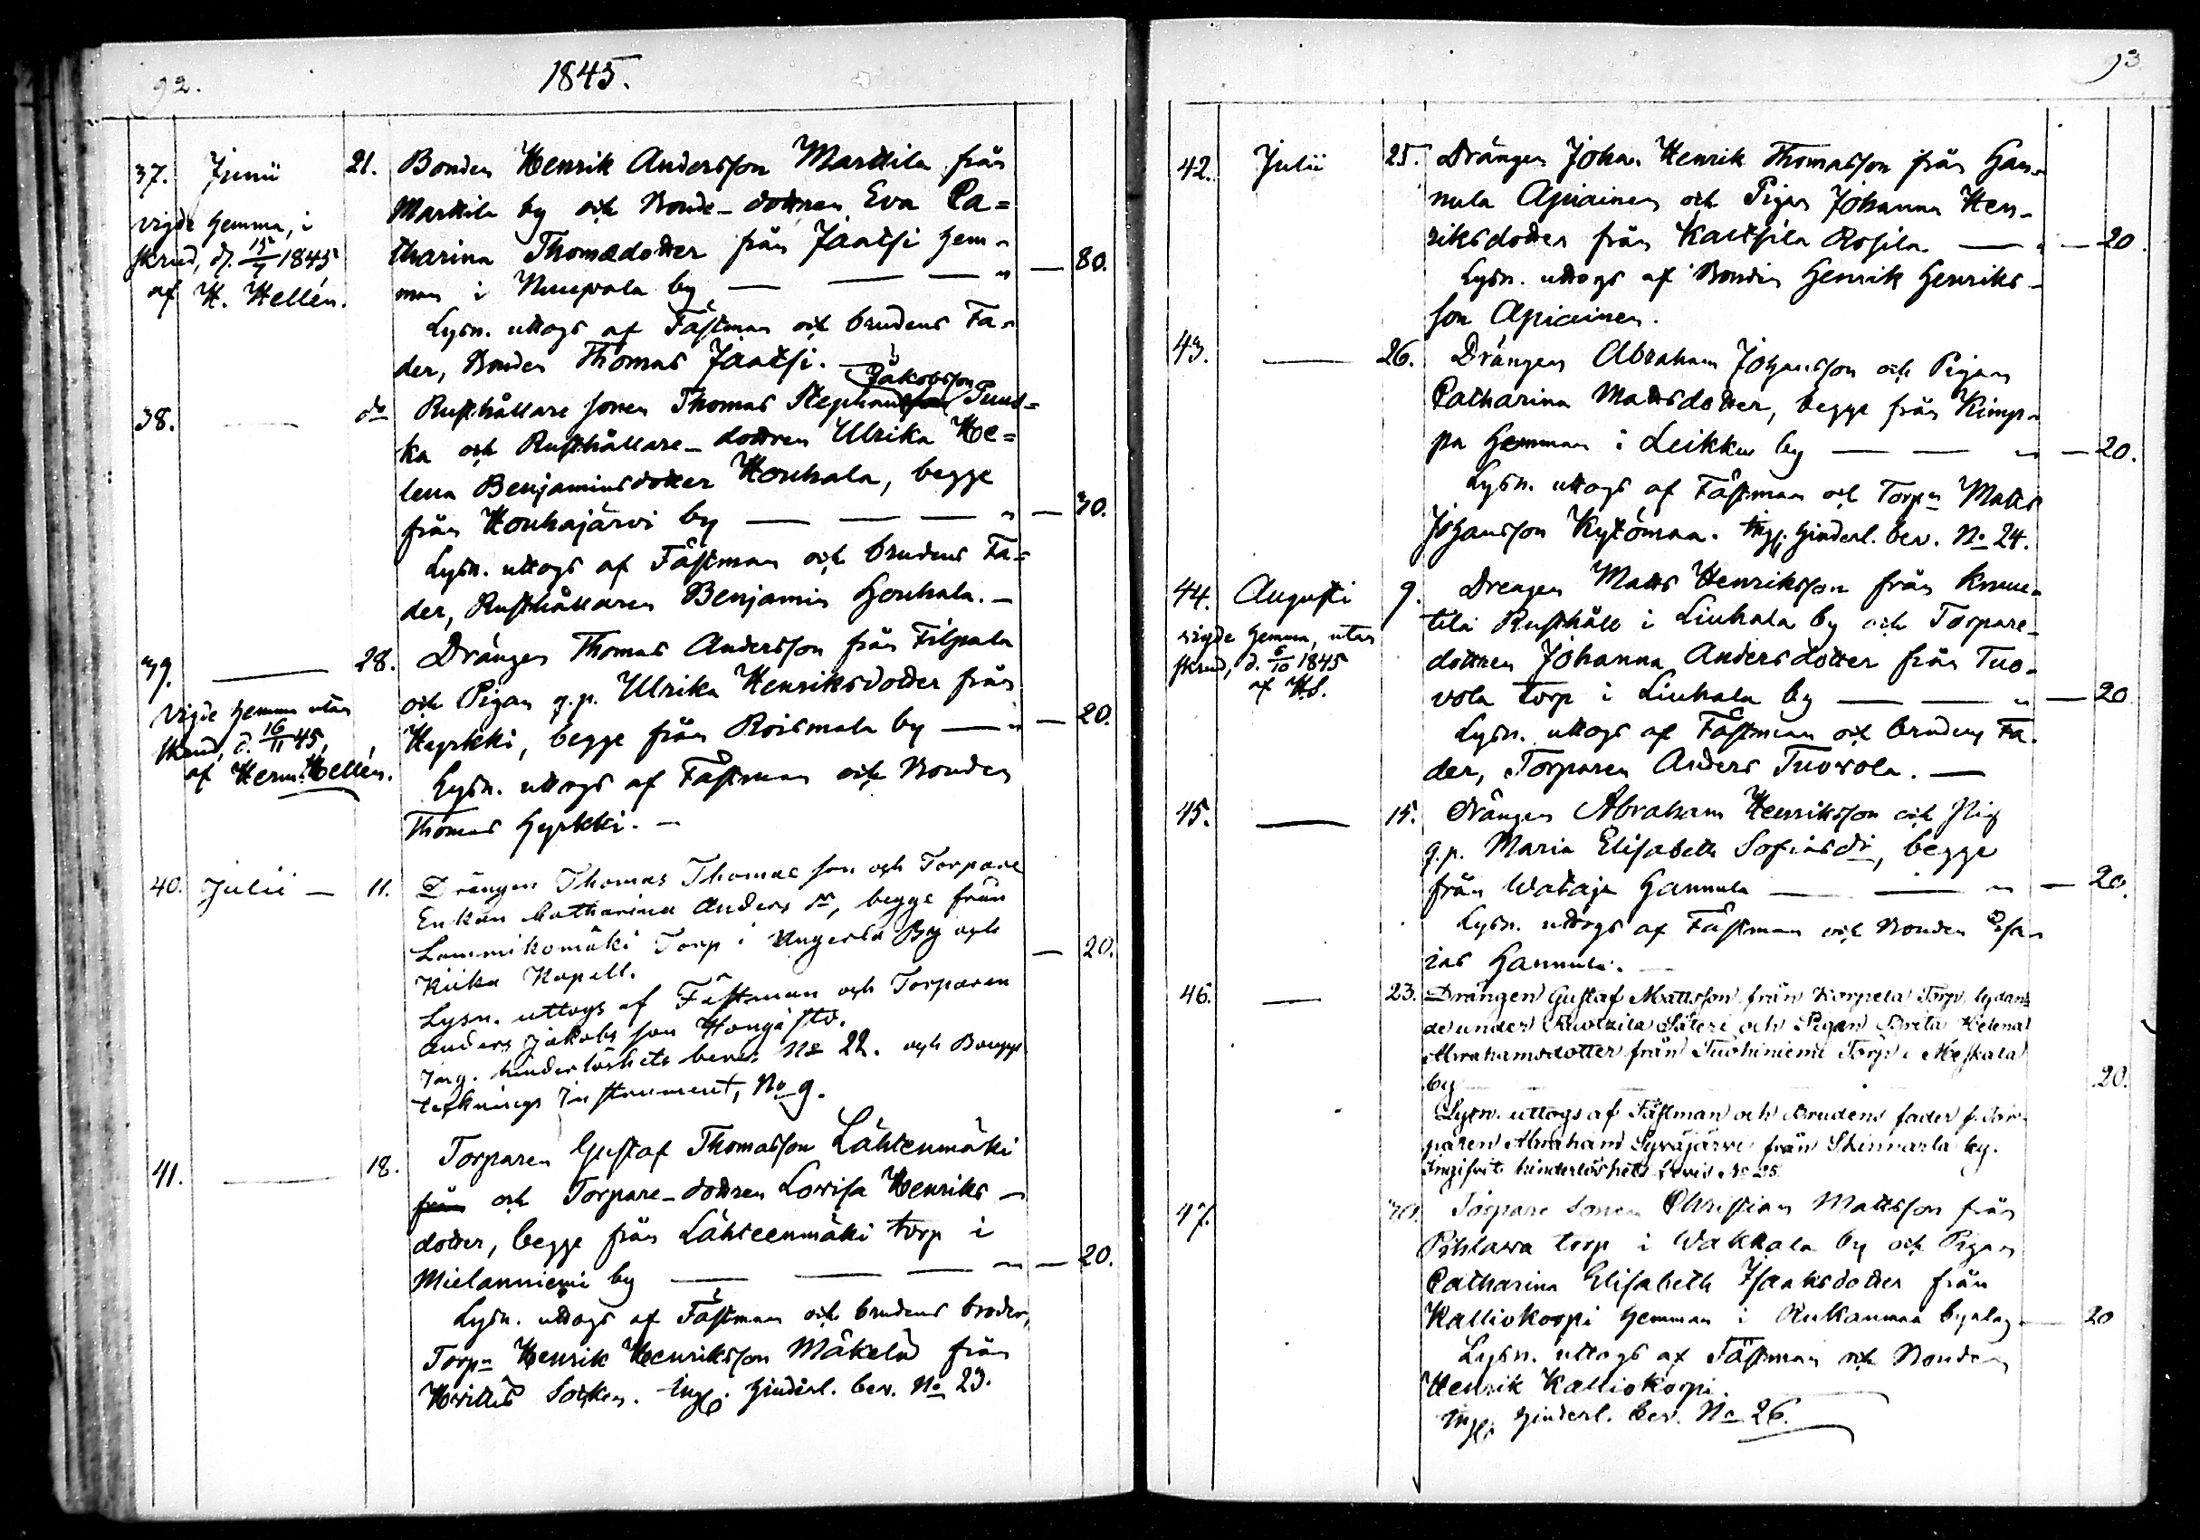 92.
1845.
37. Junii 21. Bonden Henrik Andersson Marttila från
Marttila by och Bonde-dottren Eva Ca=
tharina Thomædotter från Jaatsi hem-
man i Nuupala by — — — " — 80.
Lysn. uttogs af Fästman och brudens Fa-
der, Bonden Thomas Jaatsi. —
vigde hemma, i
skrud, d. 15/7 1845
af H. Hellén.
Jakobsson
38. — do Rusthållare sonen Thomas Stephansson Tuus=
ka och Rusthållare-dottren Ulrika He=
lena Benjaminsdotter Houhala, begge
från Houhajärvi by — — — " — 30.
Lysn. uttogs af Fästman och brudens Fa=
der, Rusthållaren Benjamin Houhala. —
39. — 28. Drängen Thomas Andersson från Filpala
och Pigan q.p. Ulrika Henriksdotter från
Hyrkki, begge från Roismala by — " — 20.
Lysn. uttogs af Fästman och Bonden
Thomas Hyrkki. —
Vigde hemma utan
skrud, d. 16/11 45,
af Herm. Hellén.
40. Julii — 11. Drängen Thomas Thomas son och Torpare
Enkan Catharina Anders dr, begge från
Lammikomäki Torp i By och
Kiika Kapell. — 20.
Lysn. uttogs af Fästman och Torparen
Anders Jakobs son
Ing. hinderlöshets bevis No 22. och Boupp
tecknings Instrument, No 9.
41. — 18. Torparen Gustaf Thomasson Lähteenmäki
från och Torpare-dottren Lovisa Henriks-
dotter, begge från Lähteenmäki torp i
Mielanniemi by — — — " — 20.
Lysn. uttogs af Fästman och brudens broder,
Torpn Henrik Henriksson Mäkelä från
Hvittis Socken. Ingg. hinderl. bev. No 23.
93
42. Julii 25. Drängen Johan Henrik Thomasson från Han-
nula Apiainen och Pigan Johanna Hen-
riksdotter från Kaltsila Rosila — " — 20.
Lysn. uttogs af Bonden Henrik Henriks-
son Apiainen.
43. — 26. Drängen Abraham Johansson och Pigan
Catharina Mattsdotter, begge från Kimp-
pa Hemman i Leikku by — — " — 20.
Lysn. uttogs af Fästman och Torpn Matts
Johansson Kytömaa. Ingg. hinderl. bev. No 24.
44. Augusti 9. Drengen Matts Henriksson från
tila Rusthåll i Liuhala by och Torpare-
dottren Johanna Anders dotter från Tuo-
vola torp i Liuhala by — — " — 20
Lysn. uttogs af Fästman och brudens Fa-
der, Torparen Anders Tuovola. —
vigde hemma, utan
skrud, d. 5/10 1845
af H.S.
45. — 15. Drängen Abraham Henriksson och Pig
q.p. Maria Elisabeth Sofiasdr, begge
från Wataja Hannula — — " — 20.
Lysn. uttogs af Fästman och Bonden Esa-
ias Hannula. —
46. — 23. Drängen Gustaf Mattsson från Korpela Torp, lydan=
de under Säteri och Pigan Brita Helena
Abrahamsdotter från Tuohiniemi Torp i Meskala
by 20.
Lysn. uttogs af Fästman och Brudens fader f. Tor-
paren Abraham Syväjärvi från by.
Ingifvit hinderlöshets bevis No 25.
47. 30. Torpare sonen Christian Mattsson från
Pihlava torp i Wakkala by och Pigan
Catharina Elisabeth Isaaksdotter från
Kalliokorpi hemman i Rukanmaa byalag — 20
Lysn. uttogs af Fästman och Bonden
Henrik Kalliokorpi.
Ingg. hinderl. bev. No 26.